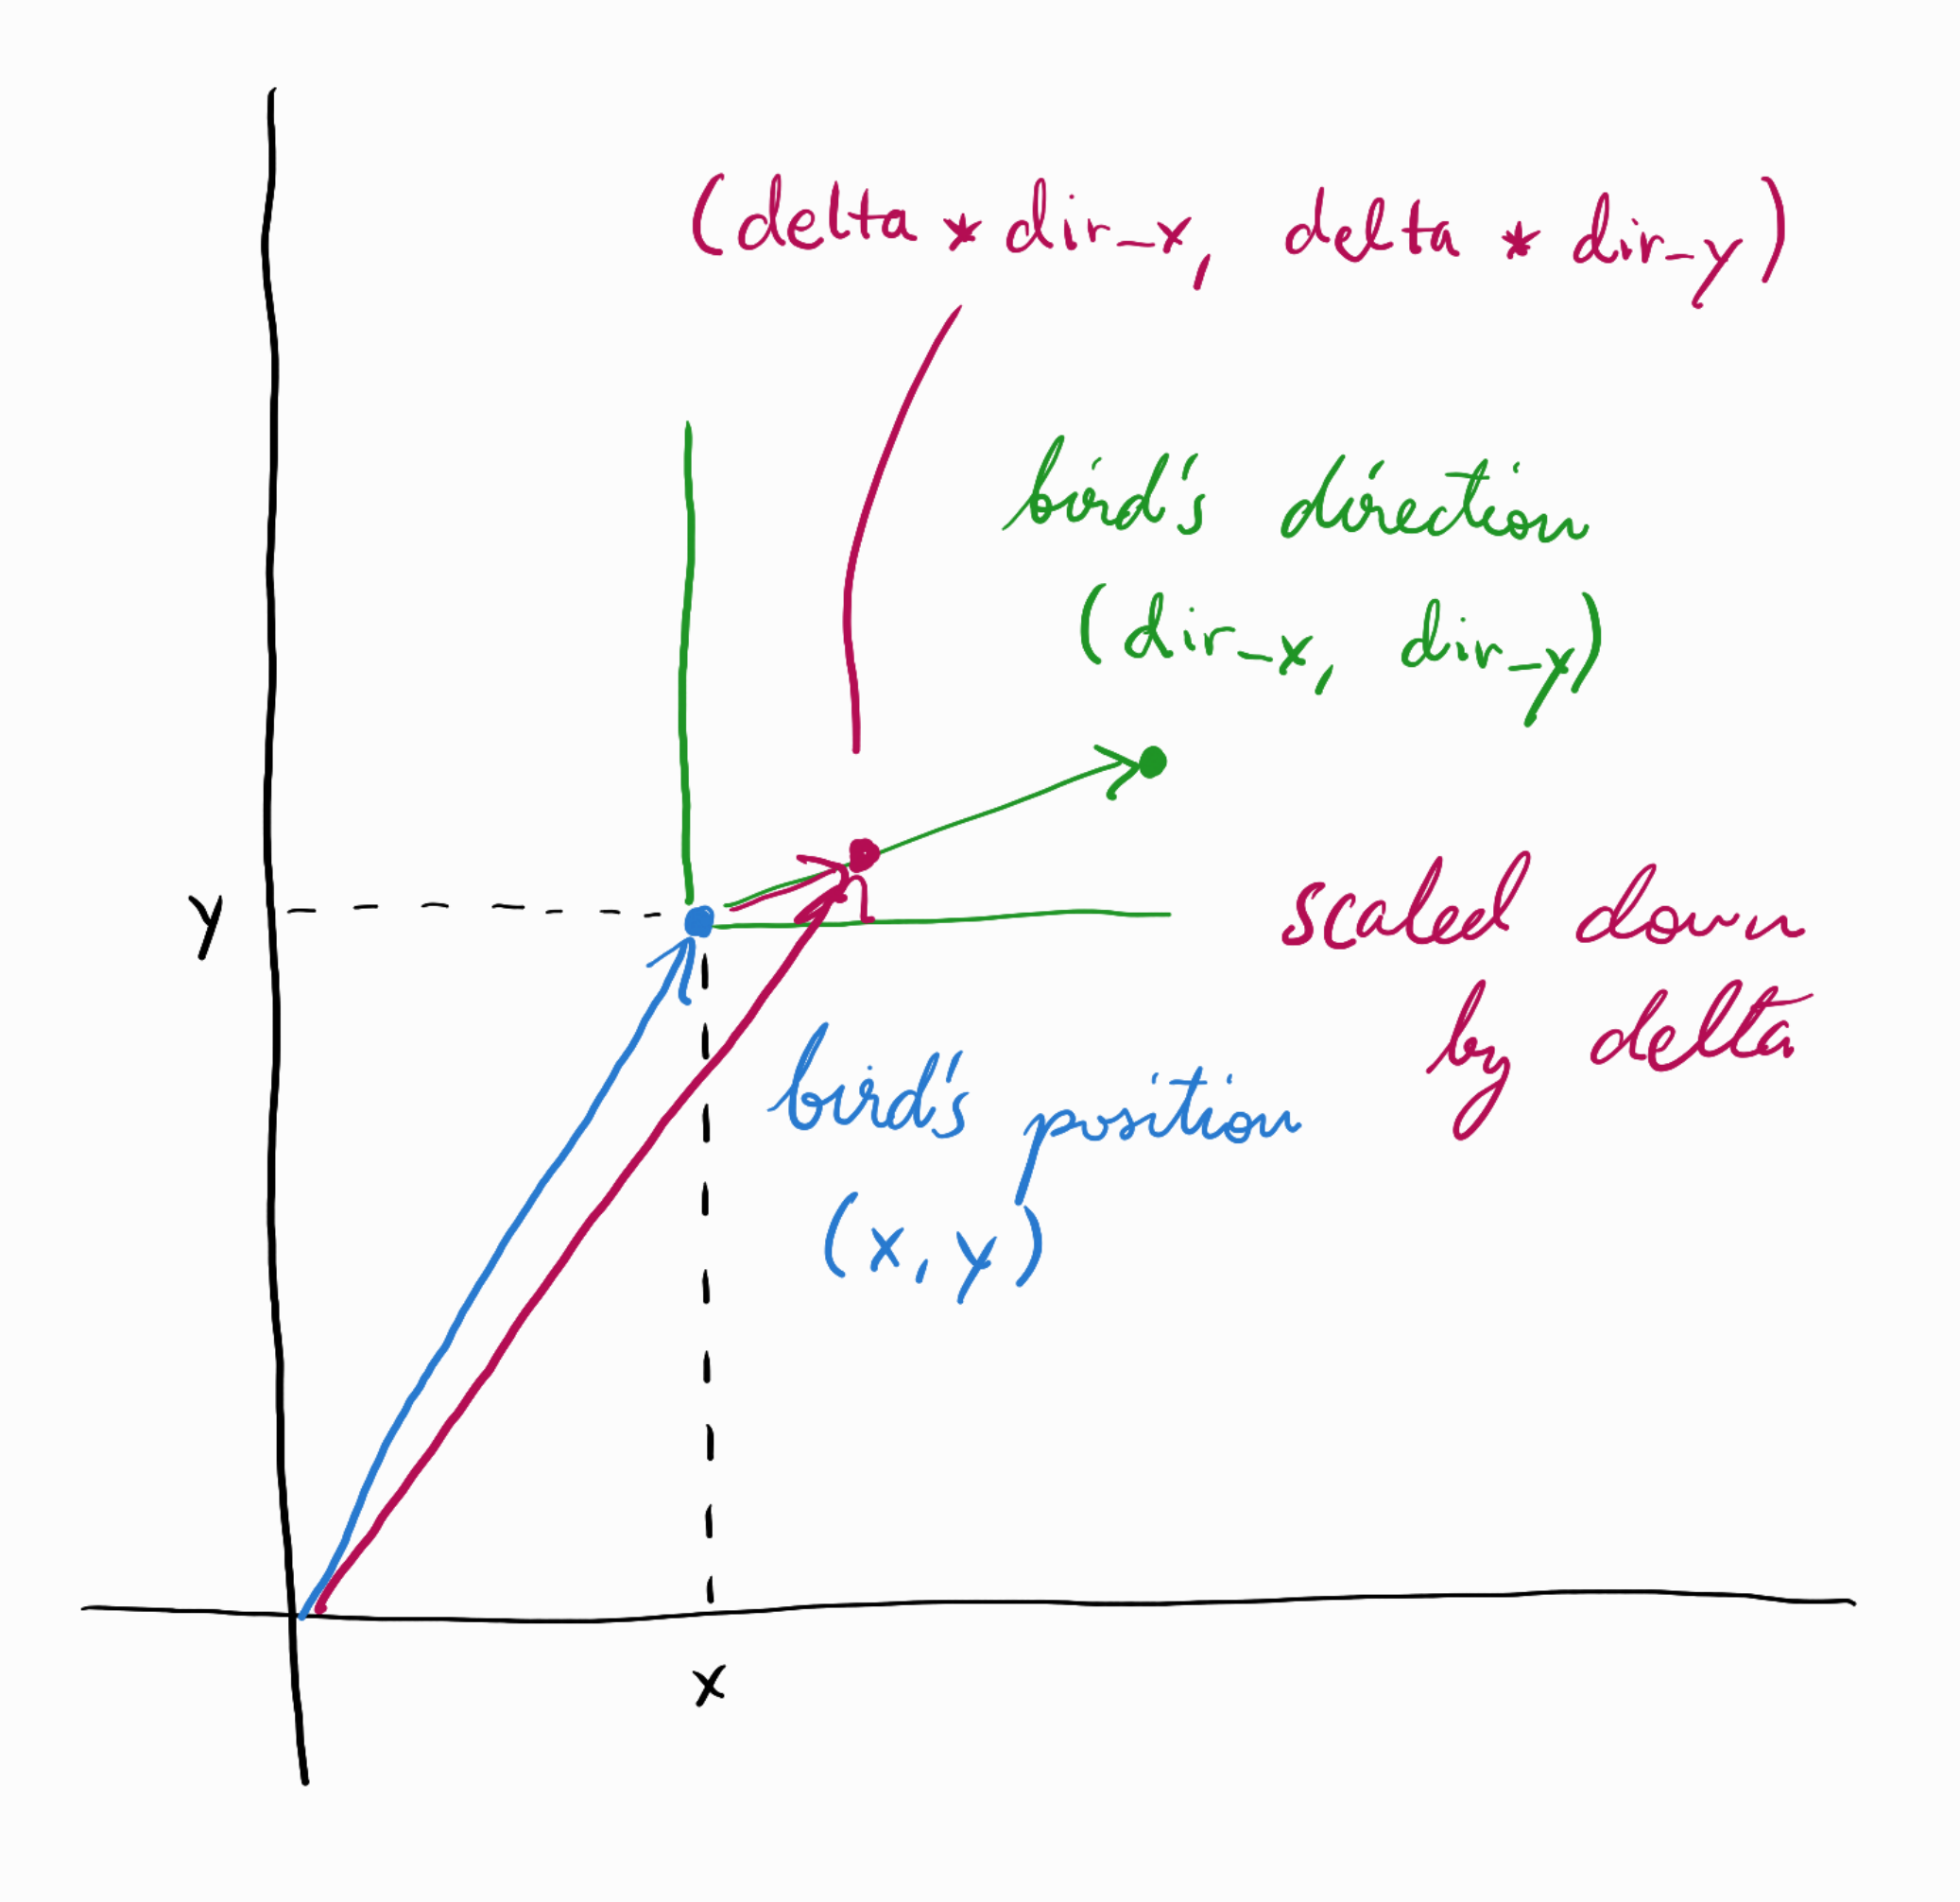 (delta * dir_x, delta * dir_y)
bird's direction
(dir_x, dir_y)
y
scaled down
by delta
bird's position
(x, y)
x